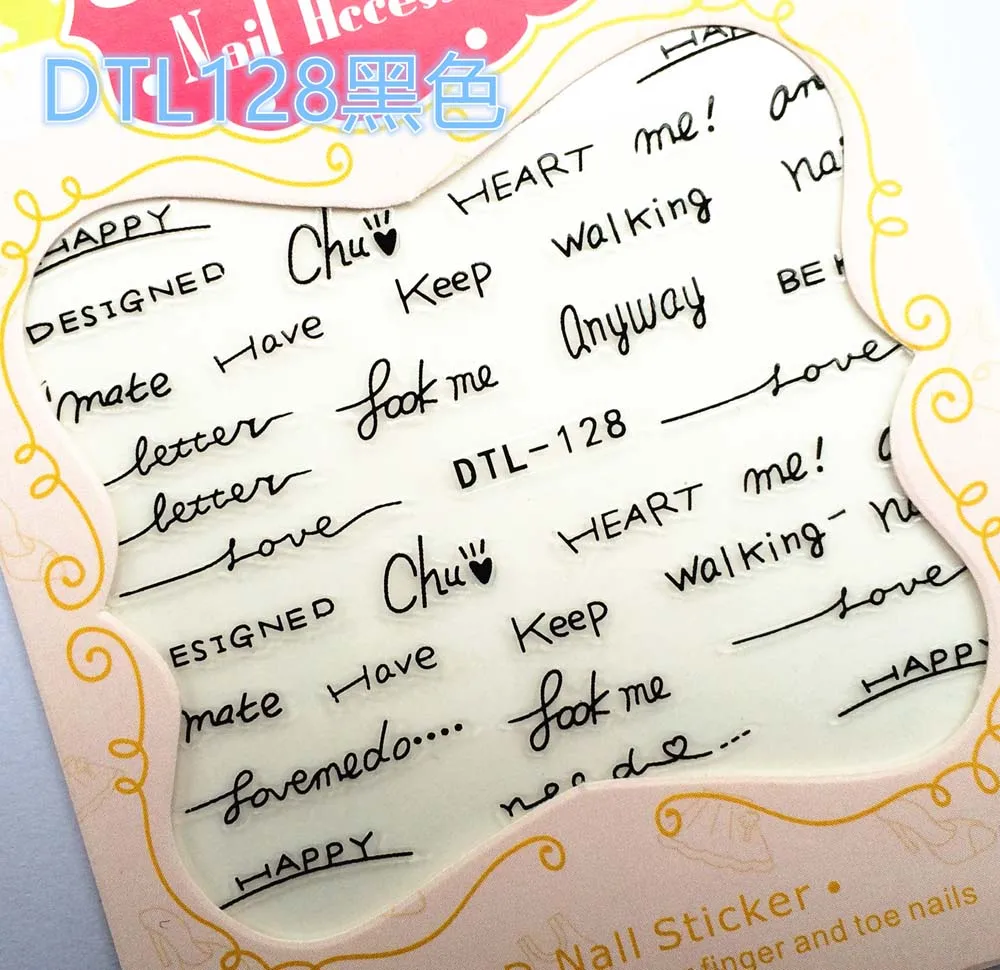 Nail Acces
DTL128黑色
HAP
HEART me! an
HAPPY Chu
walking nai
DESIGNED Keep
Have Anyway BE
mate look me
letter DTL-128 Love
letter
Love HEART me!
Chu walking
ESIGNED Keep Love
mate Have HAPPY
lovemedo.... look me
HAPPY
Nall Sticker
finger and toe nails